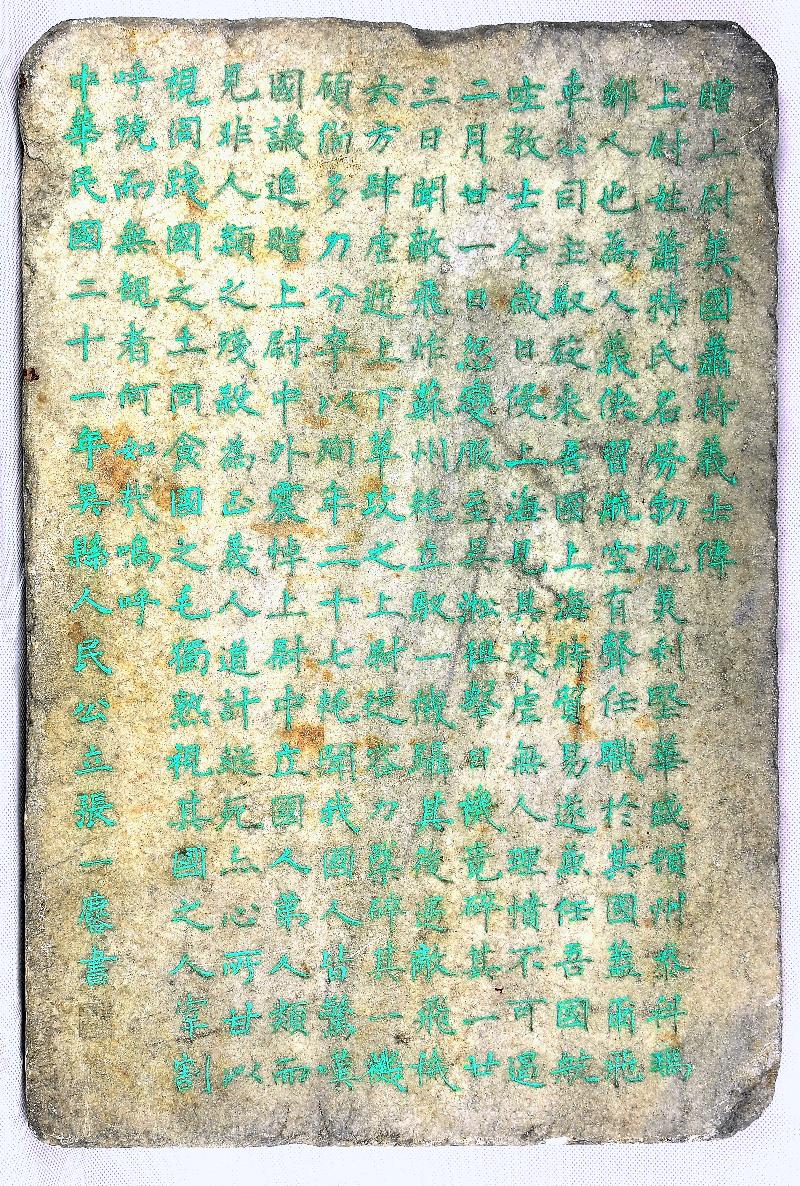 贈上尉美國蕭特義士傳
上尉姓蕭特氏名勞勃脫美利堅華盛頓州泰科瑪
鄉人也為人義俠習航空有聲任職於其國蓋爾飛
車公司主馭旋来吾國上海時貿易遂兼任吾國航
空教士今歲日侵上海見其殘虐無人理憤不可遏
二月廿一日忽變服至吳淞狙擊日機竟碎其一廿
三日聞敵飛炸蘇州純立馭一機躡其後過敵飛機
六方肆虐逝上下草攻之上尉從容力擊碎其一機
碩傷多力分卒以殉年二十七耗聞我國人皆驚嘆
國議進贈上尉中外震悼上尉中立國人第人類而
見非人類之殘殺為正義人道計縱死亦心所甘以
視同踐國之土同食國之毛獨熟視其國之人宰割
呼號而無覩者何如哉嗚呼
中華民國二十一年吳縣人民公立張一麐書